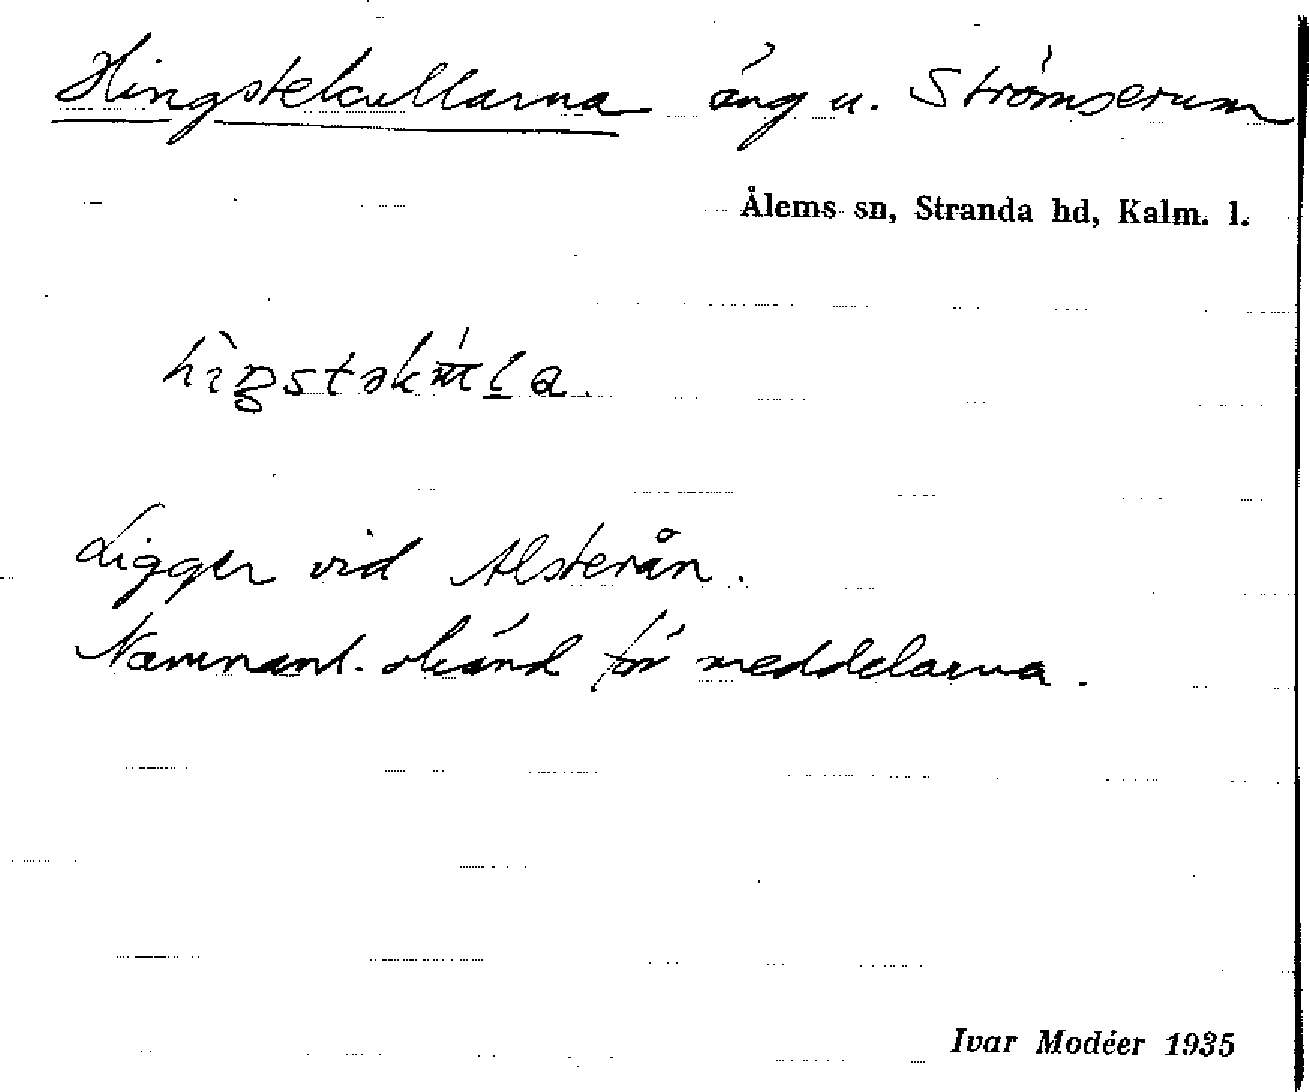 Hingstekullarna äng u. Strömserum
Ålems sn, Stranda hd, Kalm. l.
Ligger vid Alsterån.
Namnanl. okänd för meddelarna.
Ivar Modéer 1935